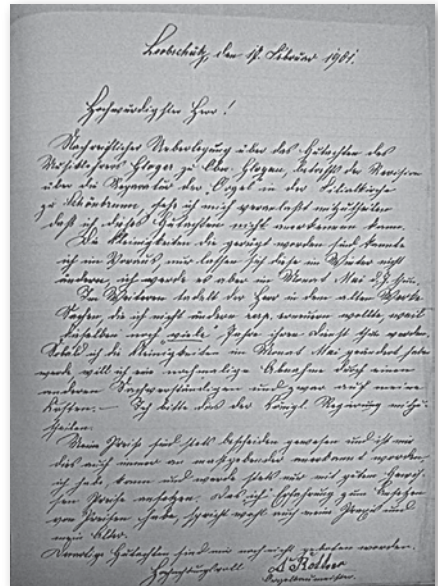 Leobschütz, den 17. Februar 1901.
Hochwürdigster Herr!
Nach reiflicher Ueberlegung über das Gutachten des
Musiklehrers Gloger zu Ober-Glogau, betreffs der Revision
über die Reparatur der Orgel in der Filialkirche
zu Schönbrunn, sehe ich mich veranlaßt mitzutheilen
daß ich dieses Gutachten nicht anerkennen kann.
Die Kleinigkeiten die gerügt worden sind kannte
ich im Voraus, nur lassen sich diese im Winter nicht
ändern, ich werde es aber im Monat Mai d. J. thun.
Im Weiteren tadelt der Herr in dem alten Werke
Sachen, die ich nicht ändern resp. erneuern wollte, weil
dieselben noch viele Jahre ihren Dienst thun werden.
Sobald ich die Kleinigkeiten im Monat Mai geändert haben
werde will ich eine nochmalige Abnahme durch einen
anderen Sachverständigen und zwar auf meine
Kosten. — Ich bitte das der Königl. Regierung mitzu-
theilen.
Meine Preise sind stets bescheiden gewesen und ist mir
dies auch immer an maßgebender anerkannt worden,
ich habe, kann und werde stets nur mit gutem Gewis-
sen Preise ansetzen. Das ich Erfahrung zum Ansetzen
von Preisen habe, spricht wohl auch meine Praxis und
mein Alter.
Derartige Gutachten sind mir noch nicht geboten worden.
Hochachtungsvoll
Orgelbaumeister.